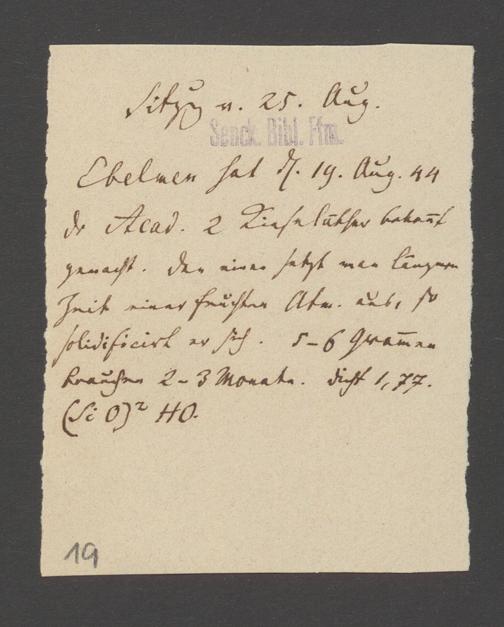 Sitzg v. 25. Aug.
Senck. Bibl. Ffm.
Ebelmen hat d. 19. Aug. 44
dr Acad. 2 Kieseläther bekañt
gemacht. Den einen setzt man längere
Zeit einer feuchten Atm. aus, so
solidificirt er sich. 5-6 Grammen
brauchen 2-3 Monate. Dicht 1,77.
(Si O)² HO.
19